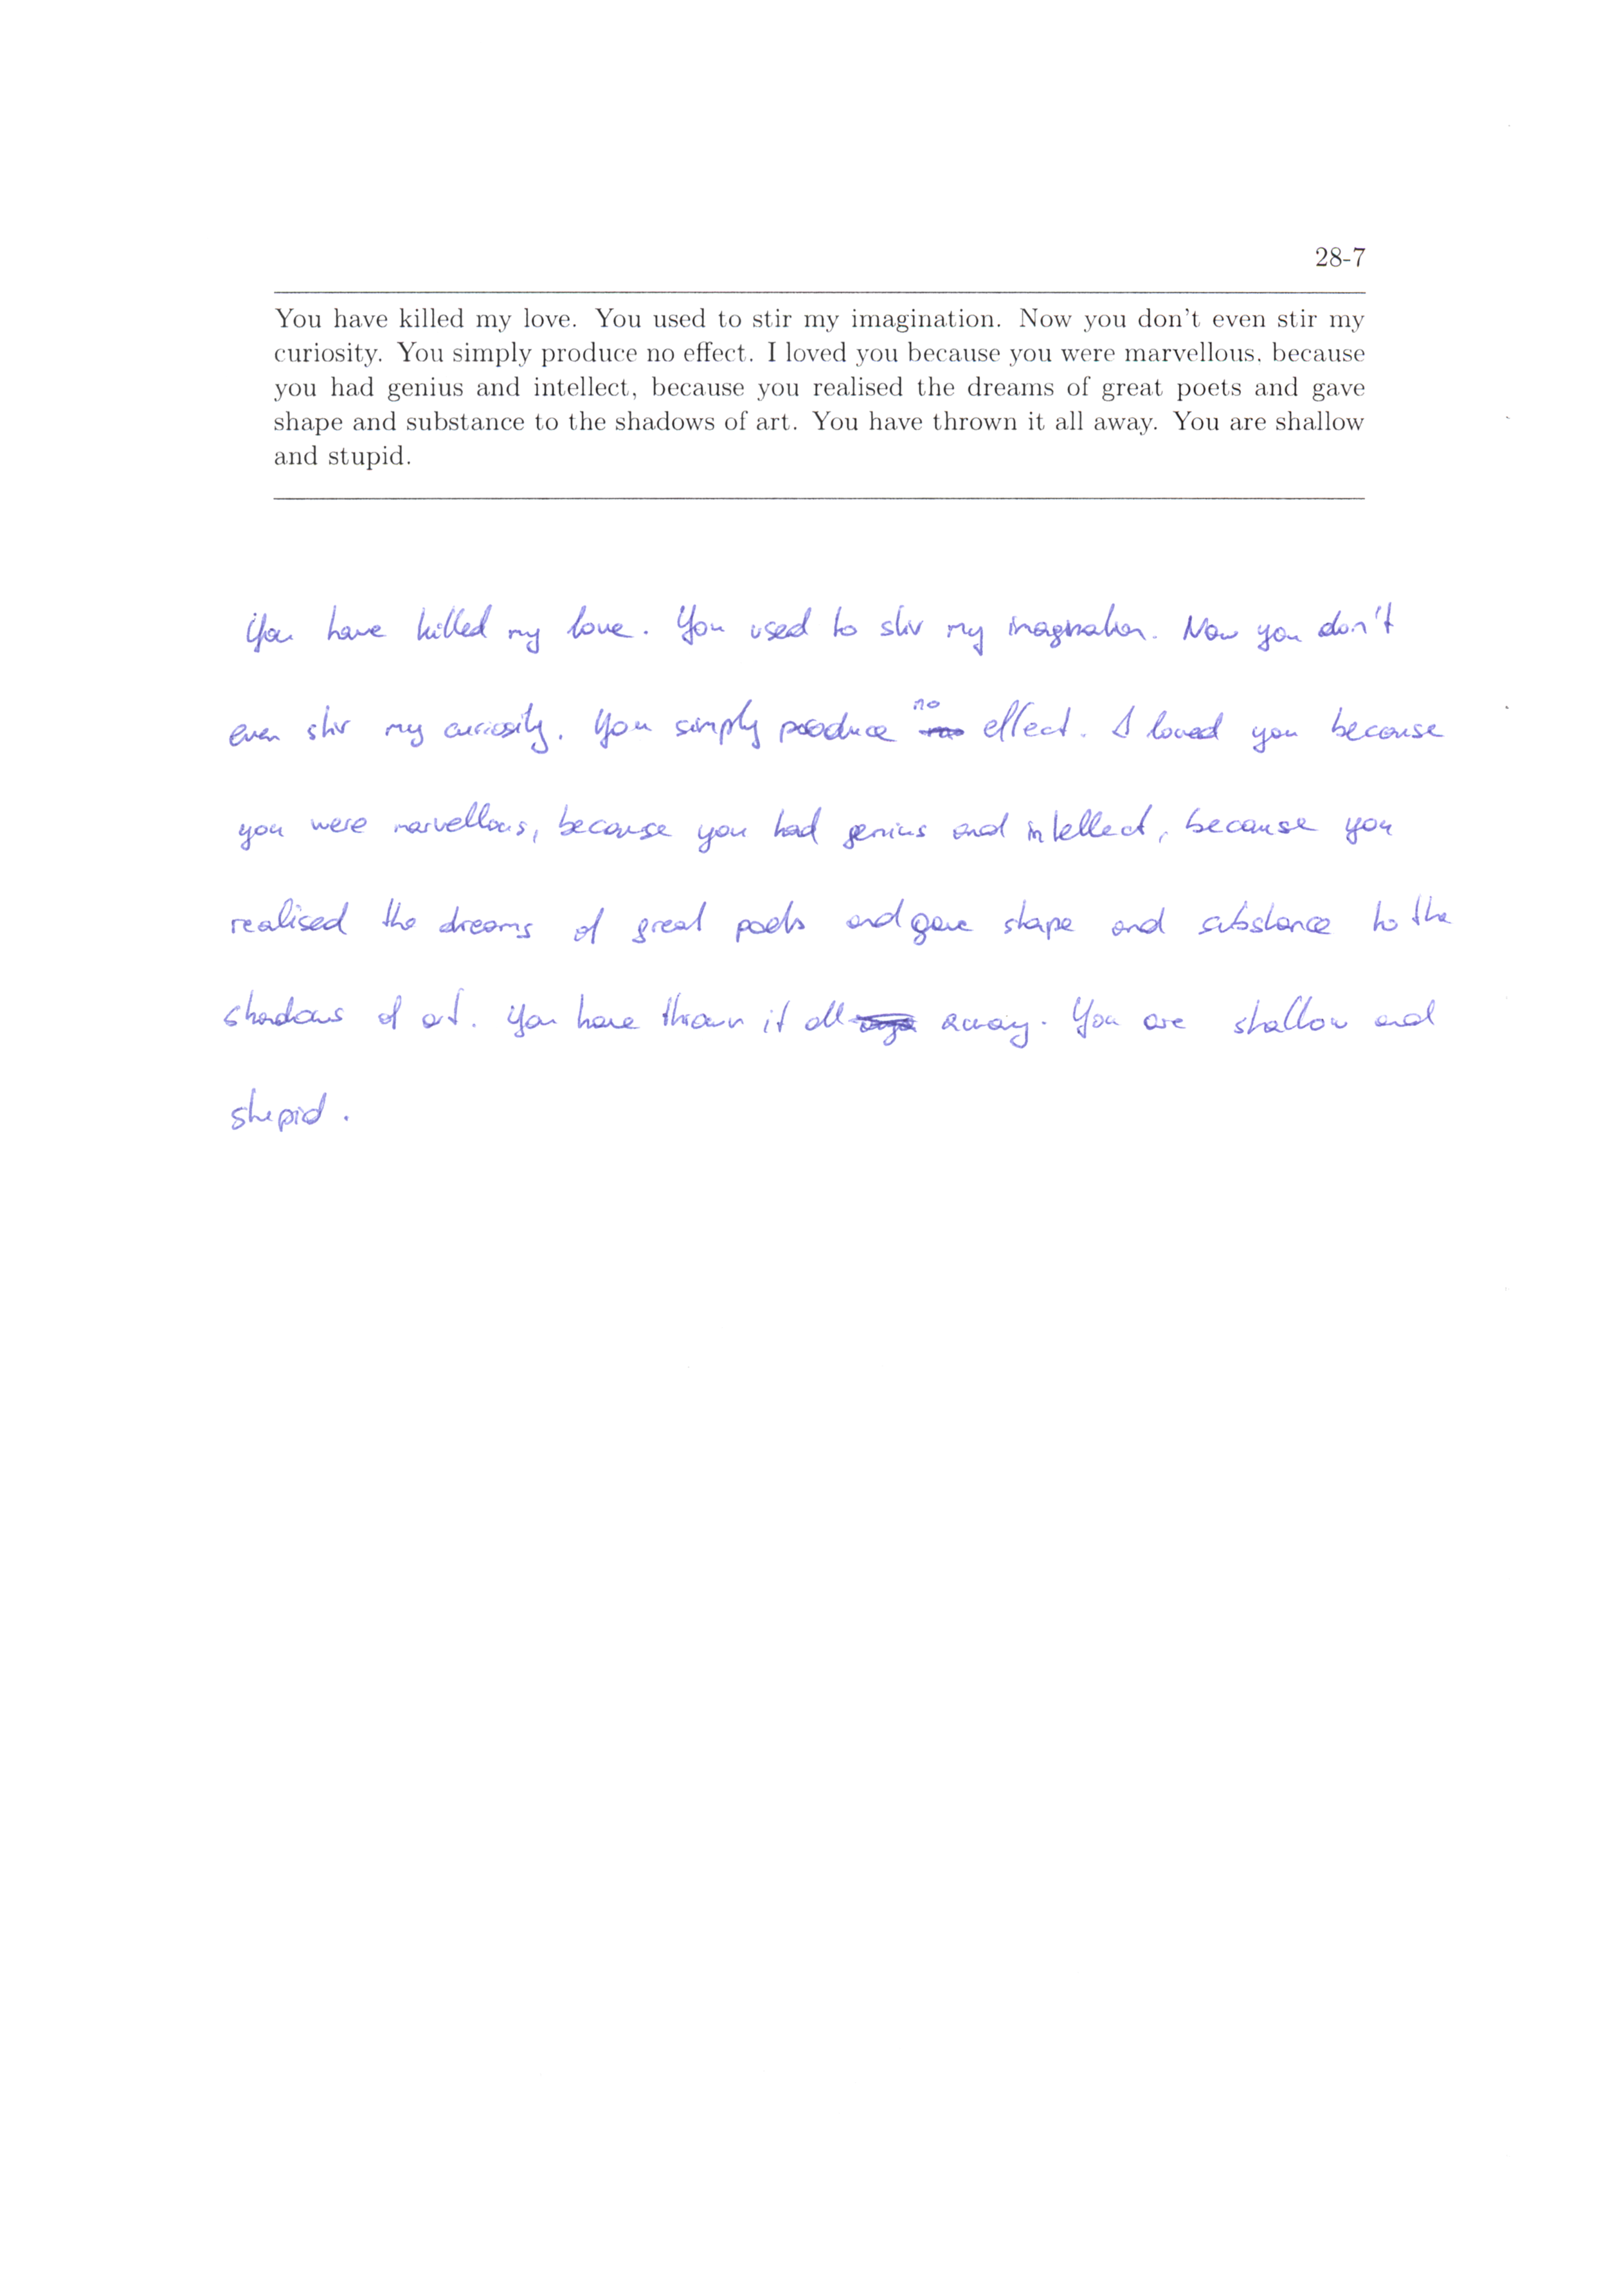 28-7
You have killed my love. You used to stir my imagination. Now you don't even stir my
curiosity. You simply produce no effect. I loved you because you were marvellous. because
you had genius and intellect, because you realised the dreams of great poets and gave
shape and substance to the shadows of art. You have thrown it all away. You are shallow
and stupid.
You have killed my love. You used to stir my imagination. Now you don't
even stir my curiosity. You simply produce no effect. I loved you because
you were marvellous, because you had genius and intellect, because you
realised the dreams of great poets and gave shape and substance to the
shadows of art. You have thrown it all away. You are shallow and
stupid.